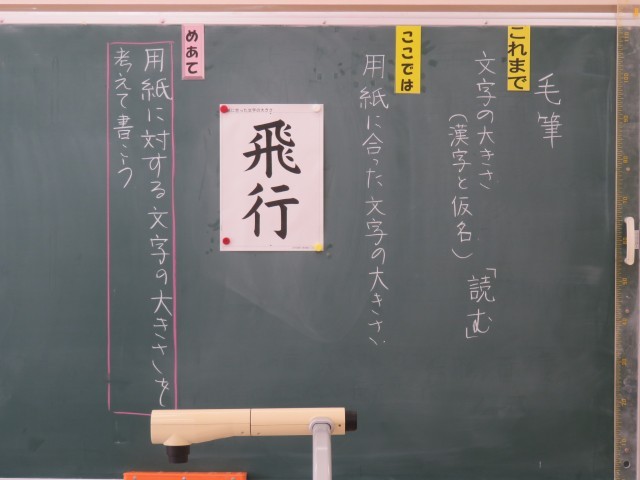 毛筆
これまで
文字の大きさ
(漢字と仮名)
「読む」
ここでは
用紙に合った文字の大きさ
飛行
めあて
用紙に対する文字の大きさを
考えて書こう